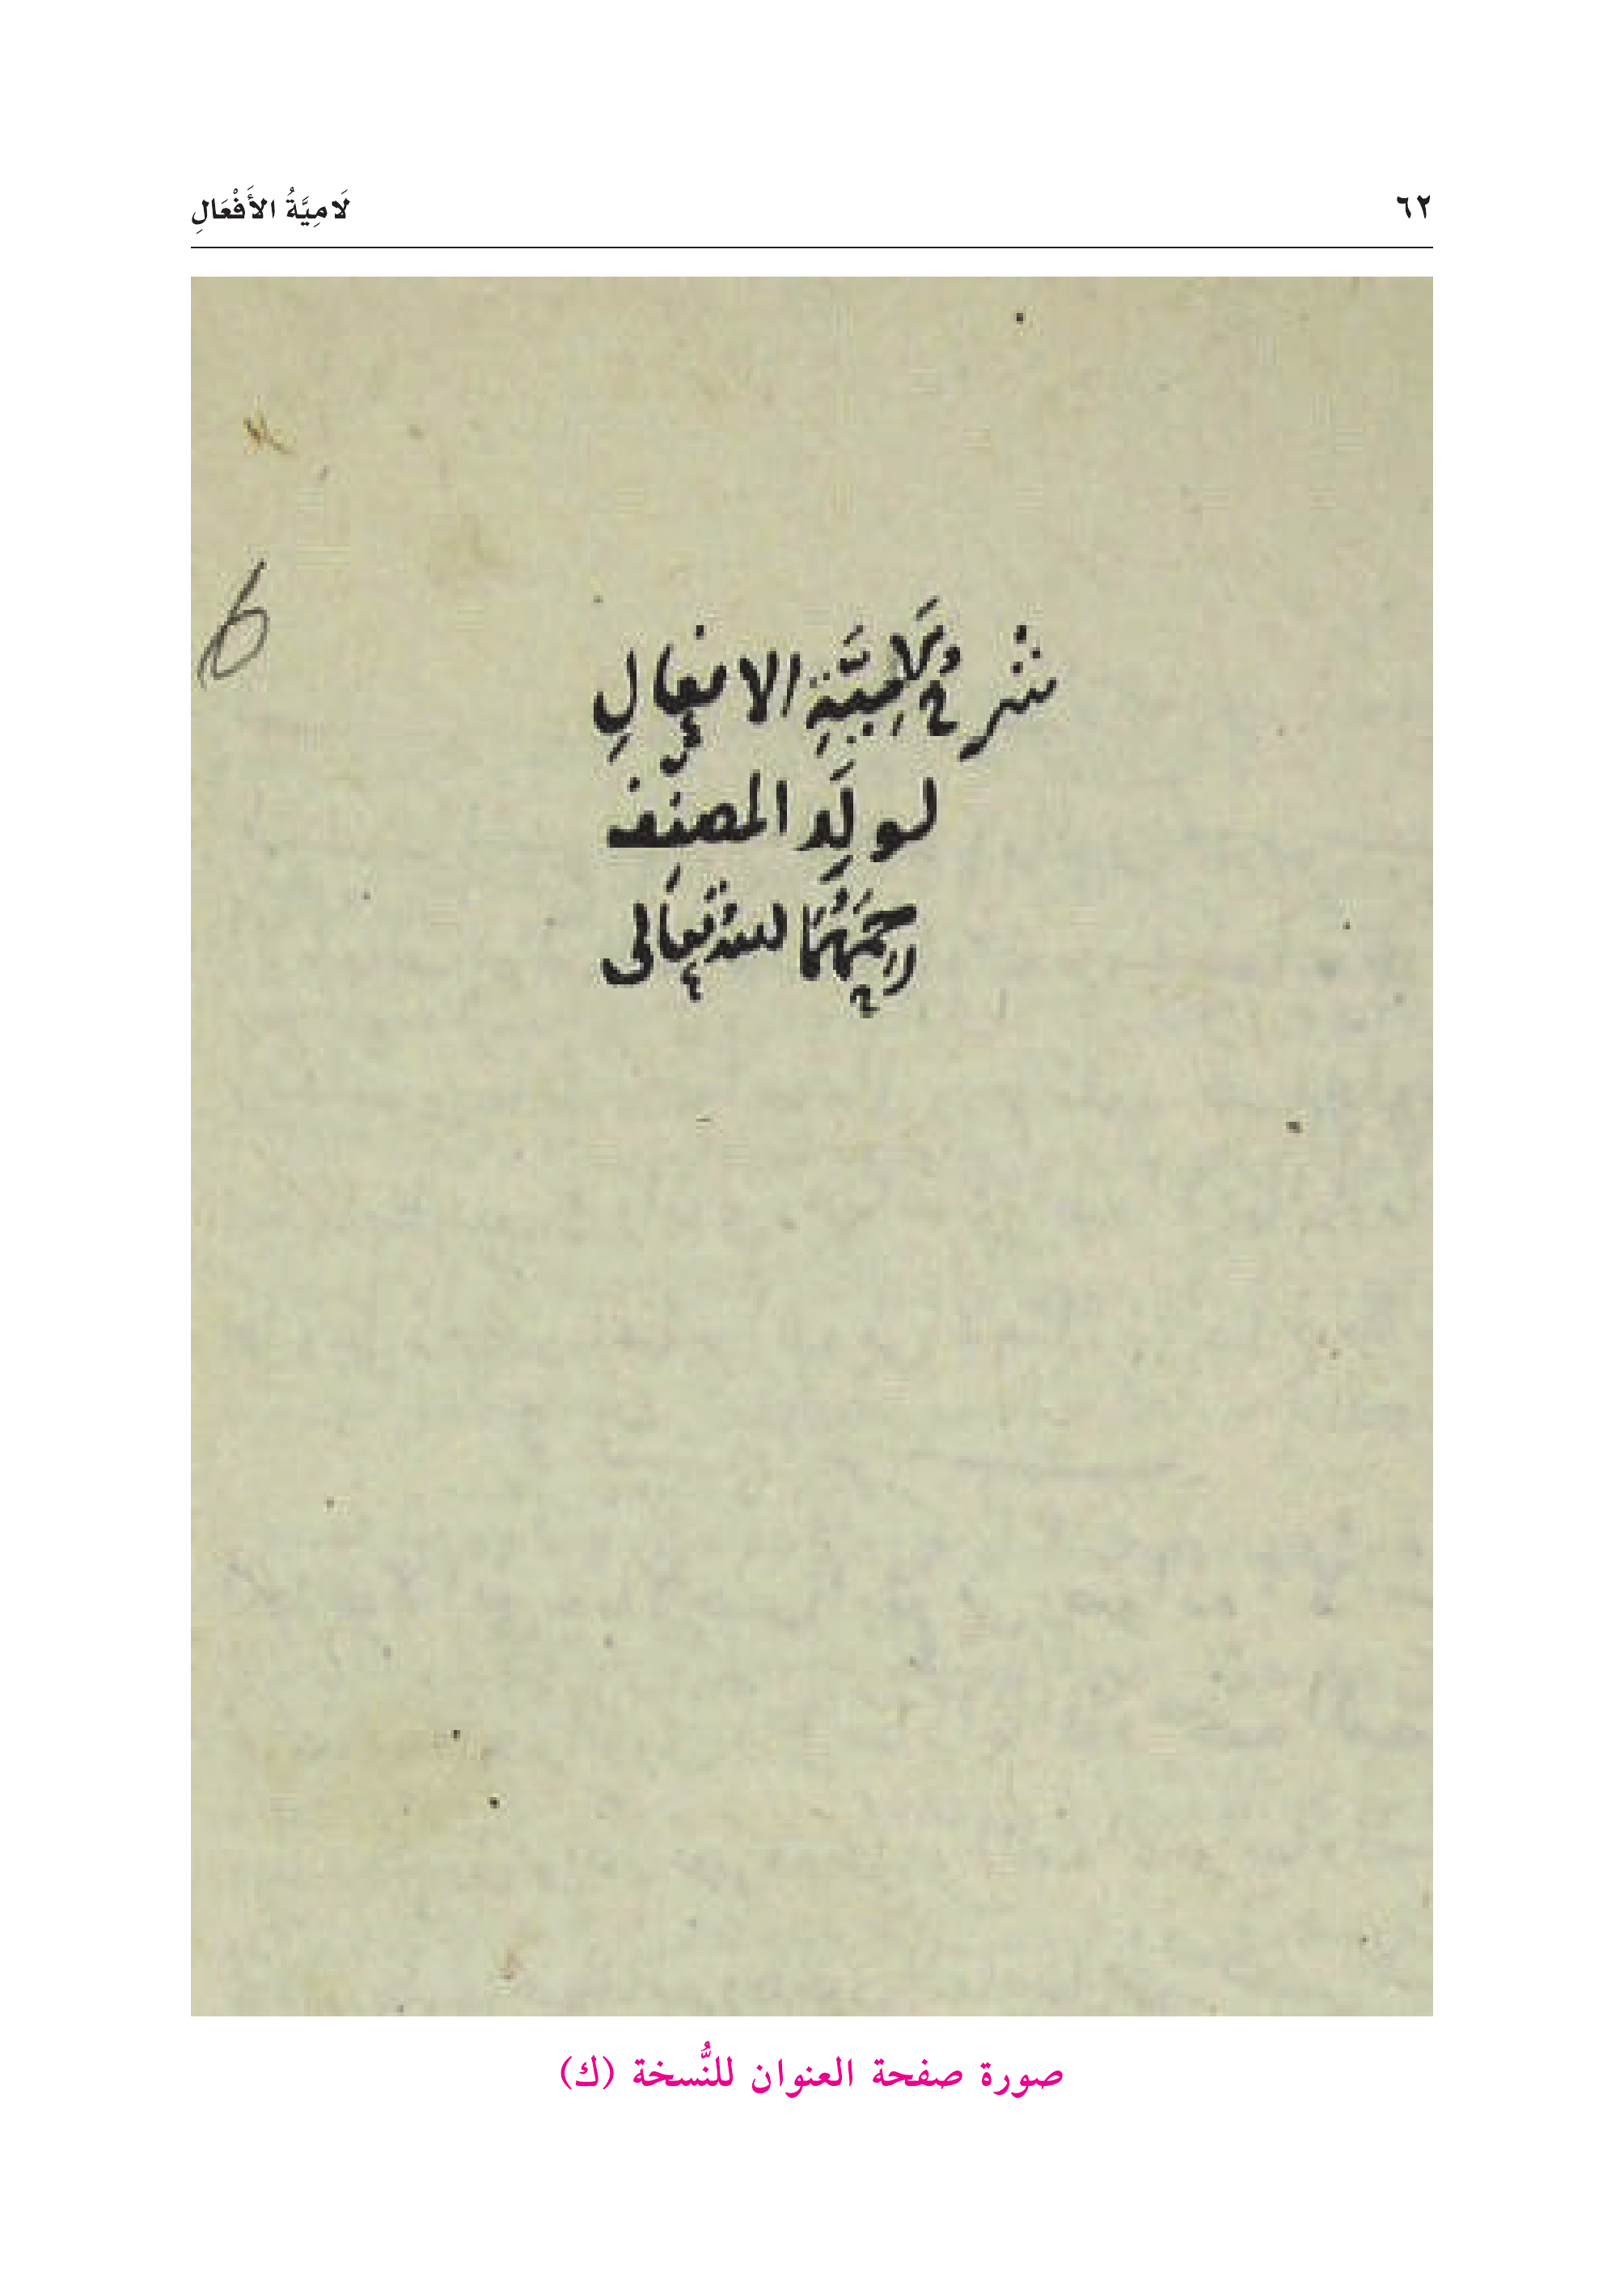 ٦٢ لَامِيَّةُ الأَفْعَالِ
شرحُ لَامِيَّةِ الافعالِ
لولَدِ المصنِّف
رحِمَهُمَا الله تعَالى
صورة صفحة العنوان للنُّسخة (ك)